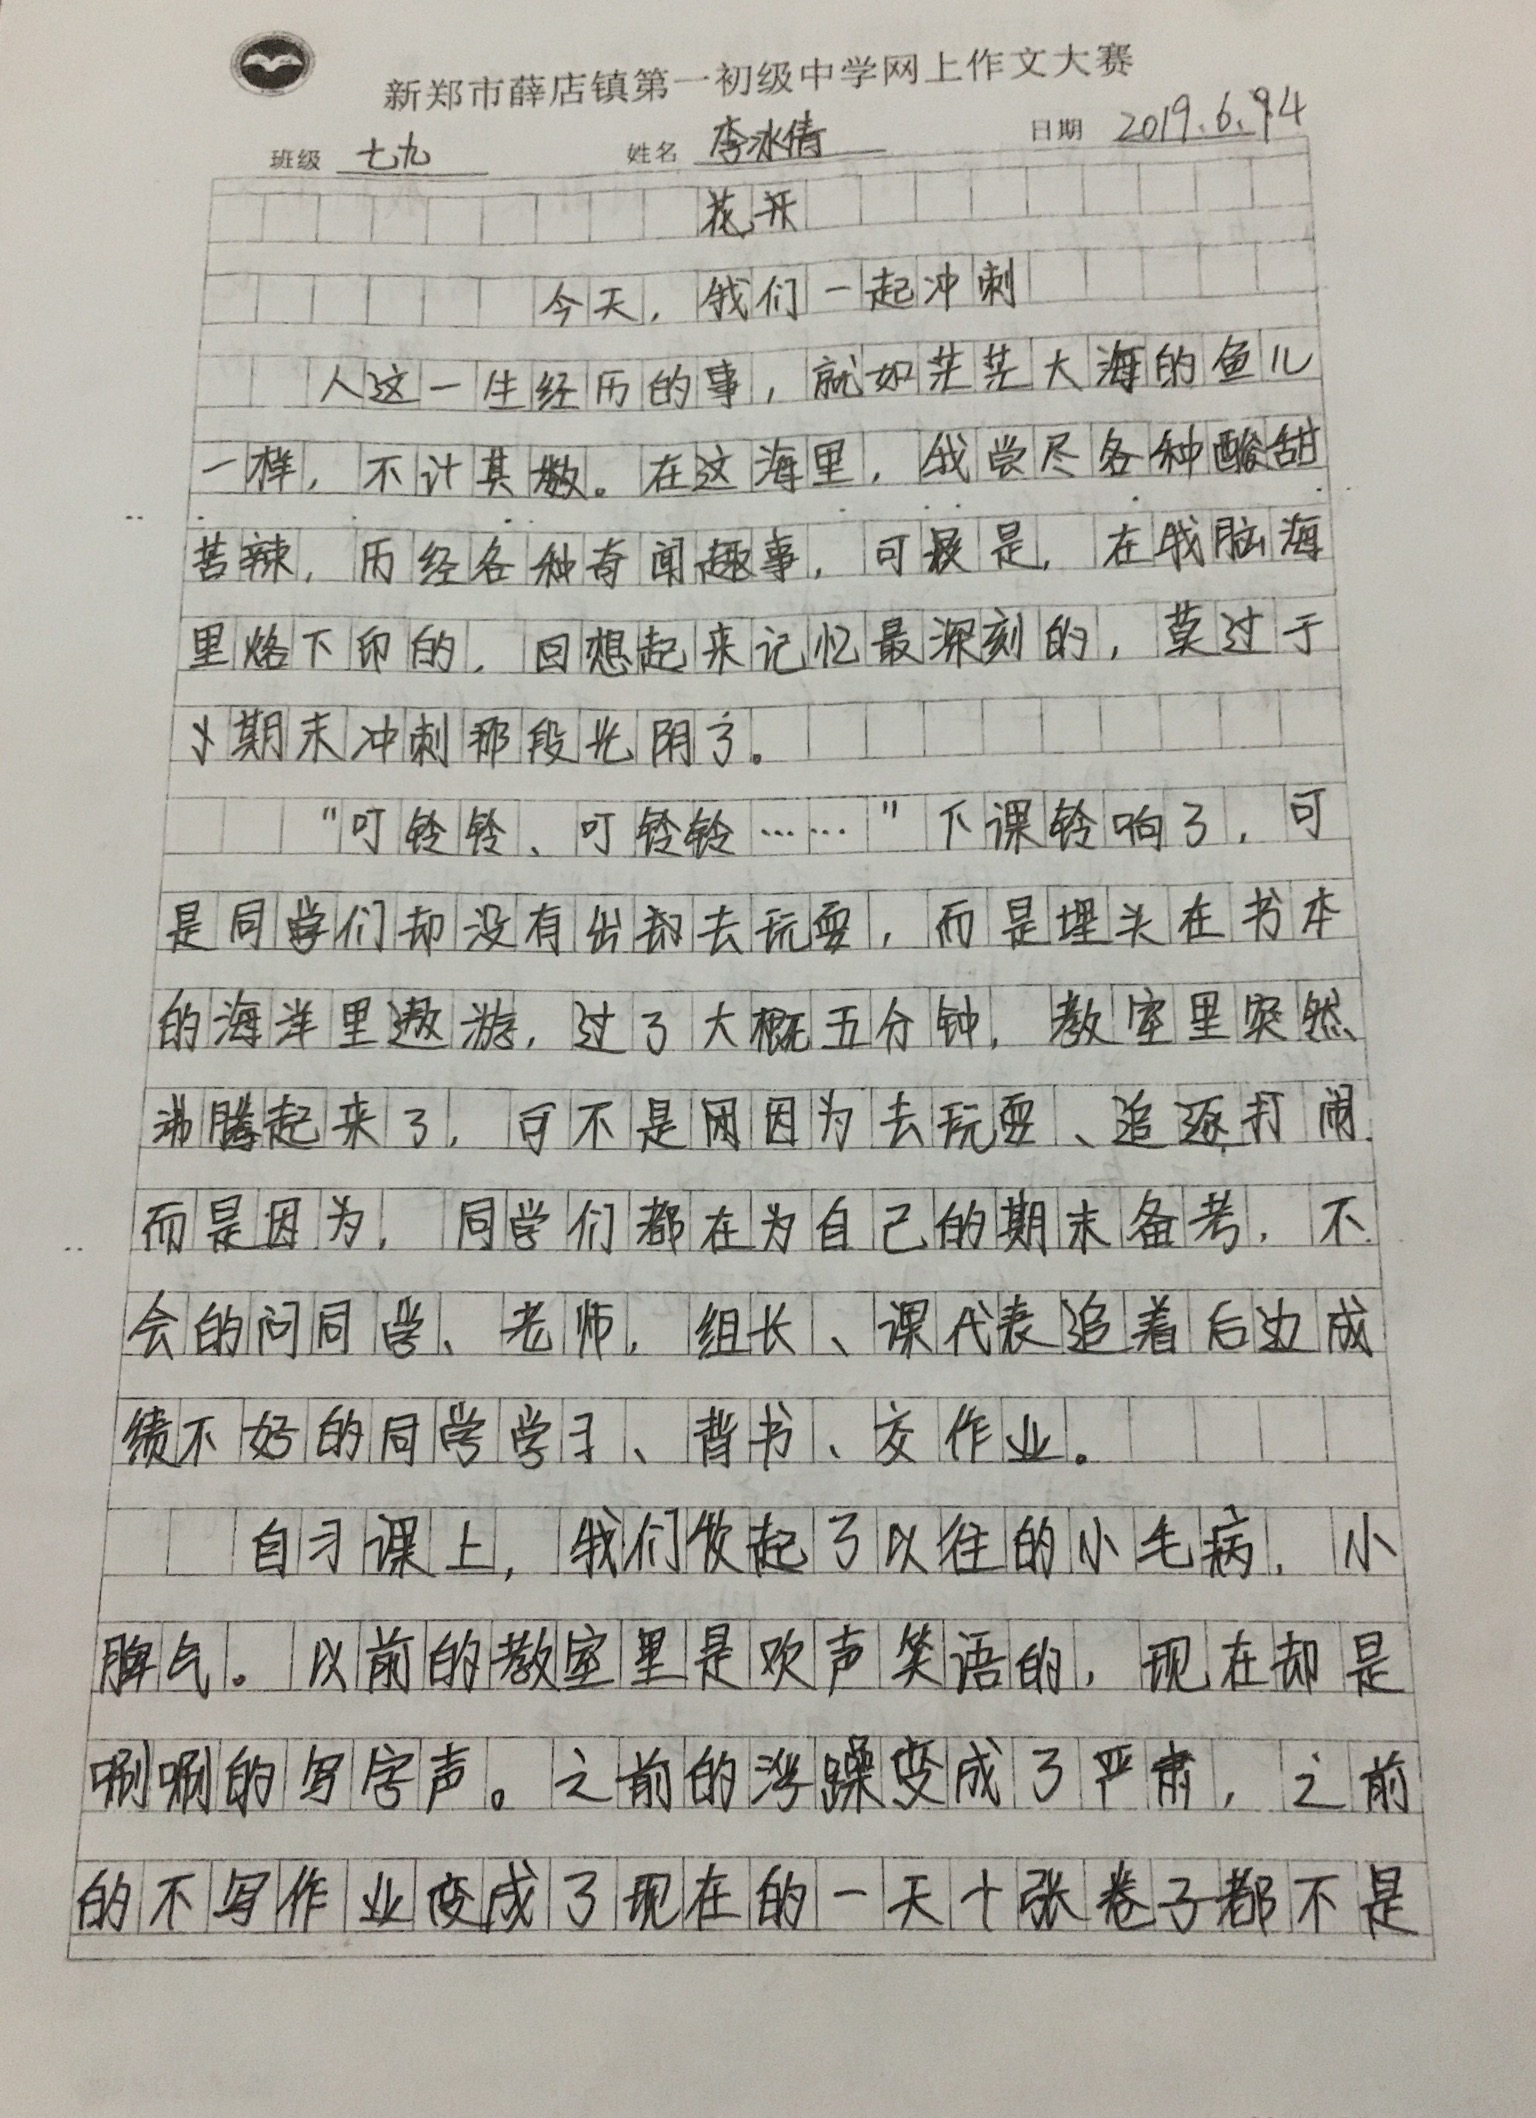 新郑市薛店镇第一初级中学网上作文大赛
班级 七九 姓名 李冰倩 日期 2019.6.94
花开
今天，我们一起冲刺
人这一生经历的事，就如茫茫大海的鱼儿
一样，不计其数。在这海里，我尝尽各种酸甜
苦辣，历经各种奇闻趣事，可最是，在我脑海
里烙下印的，回想起来记忆最深刻的，莫过于
期末冲刺那段光阴了。
"叮铃铃、叮铃铃……"下课铃响了，可
是同学们却没有出却去玩耍，而是埋头在书本
的海洋里遨游，过了大概五分钟，教室里突然
沸腾起来了，可不是因为去玩耍、追逐打闹，
而是因为，同学们都在为自己的期末备考，不
会的问同学、老师，组长、课代表追着后边成
绩不好的同学学习、背书、交作业。
自习课上，我们收起了以往的小毛病，小
脾气。以前的教室里是欢声笑语的，现在却是
唰唰的写字声。之前的浮躁变成了严肃，之前
的不写作业变成了现在的一天十张卷子都不是